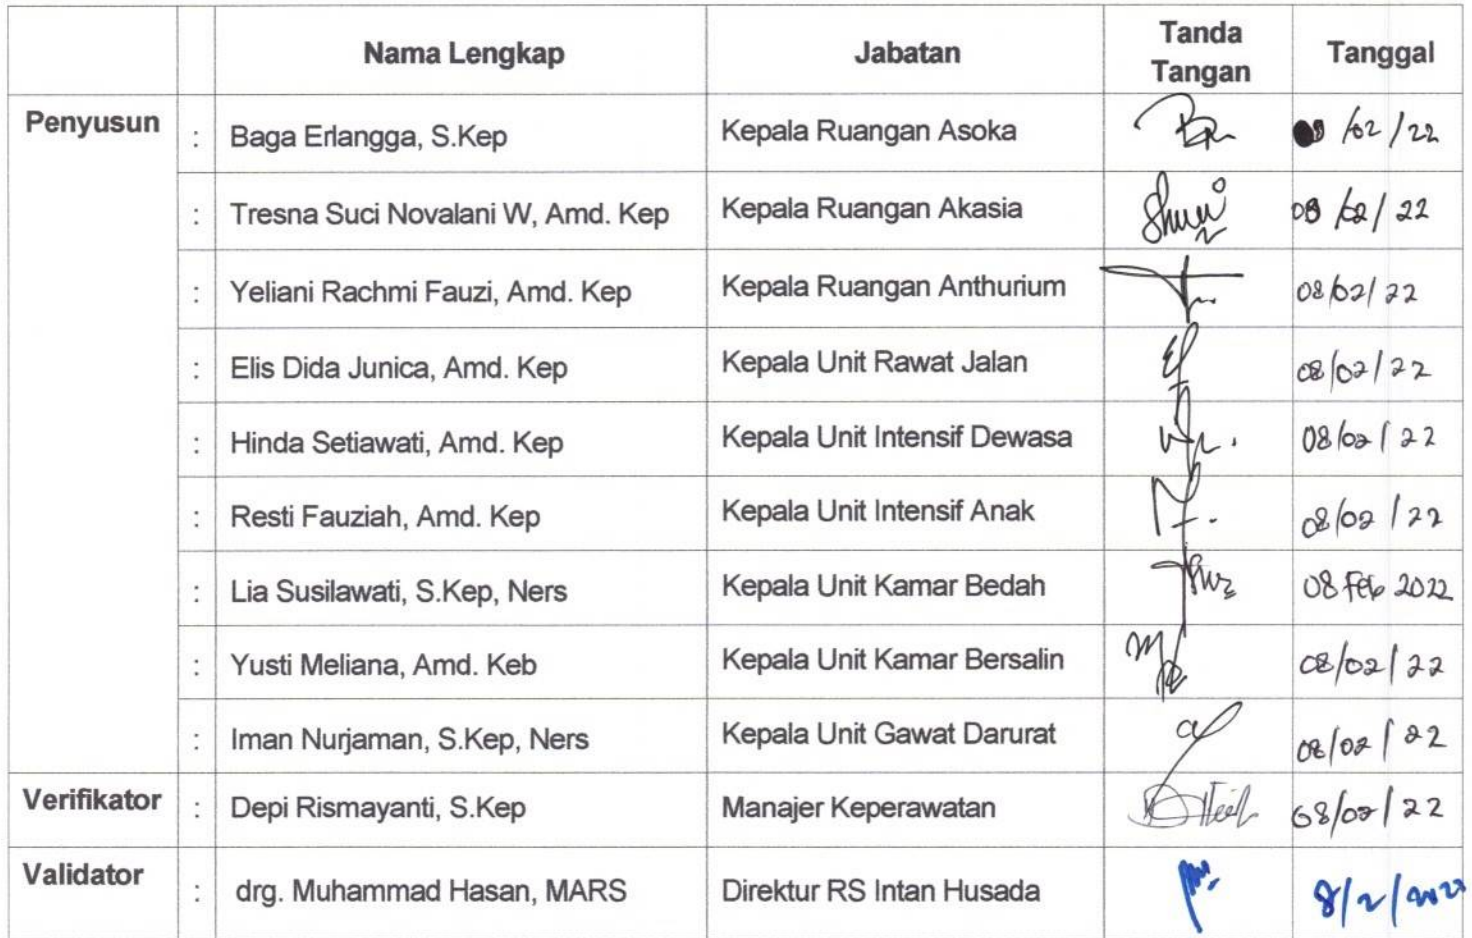 Nama Lengkap Jabatan Tanda Tangan Tanggal
Penyusun : Baga Erlangga, S.Kep Kepala Ruangan Asoka 08/02/22
: Tresna Suci Novalani W, Amd. Kep Kepala Ruangan Akasia 08/02/22
: Yeliani Rachmi Fauzi, Amd. Kep Kepala Ruangan Anthurium 08/02/22
: Elis Dida Junica, Amd. Kep Kepala Unit Rawat Jalan 08/02/22
: Hinda Setiawati, Amd. Kep Kepala Unit Intensif Dewasa 08/02/22
: Resti Fauziah, Amd. Kep Kepala Unit Intensif Anak 08/02/22
: Lia Susilawati, S.Kep, Ners Kepala Unit Kamar Bedah 08 Feb 2022
: Yusti Meliana, Amd. Keb Kepala Unit Kamar Bersalin 08/02/22
: Iman Nurjaman, S.Kep, Ners Kepala Unit Gawat Darurat 08/02/22
Verifikator : Depi Rismayanti, S.Kep Manajer Keperawatan 08/02/22
Validator : drg. Muhammad Hasan, MARS Direktur RS Intan Husada 8/2/2022